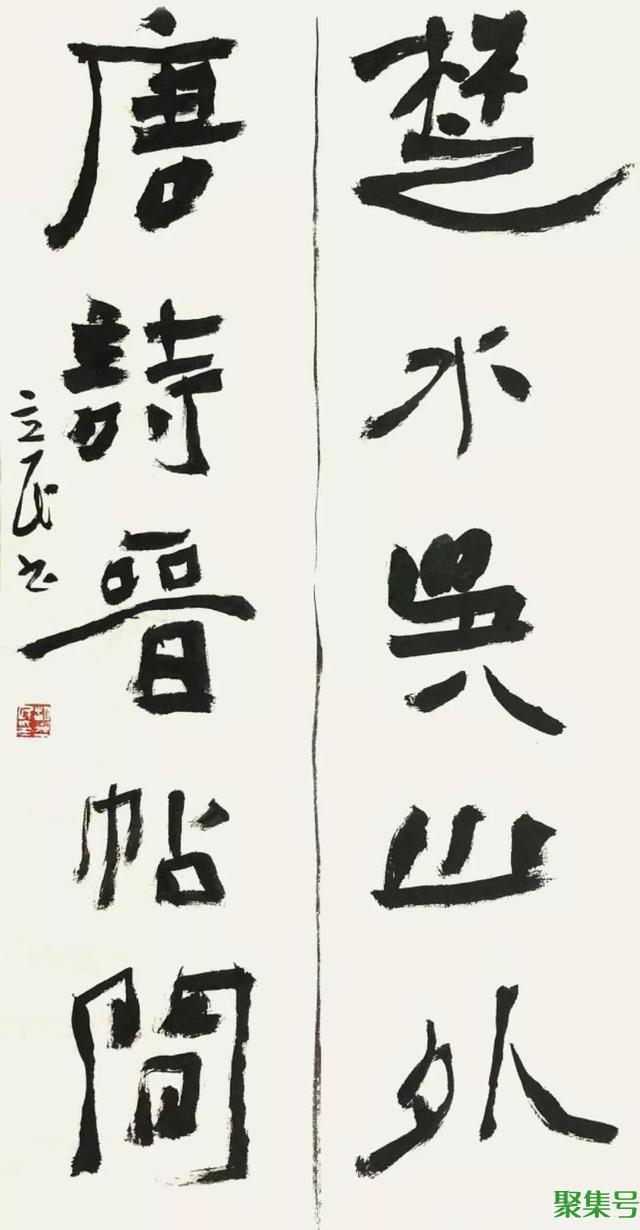 楚水吳山外
唐詩晉帖間
立民书
聚集号